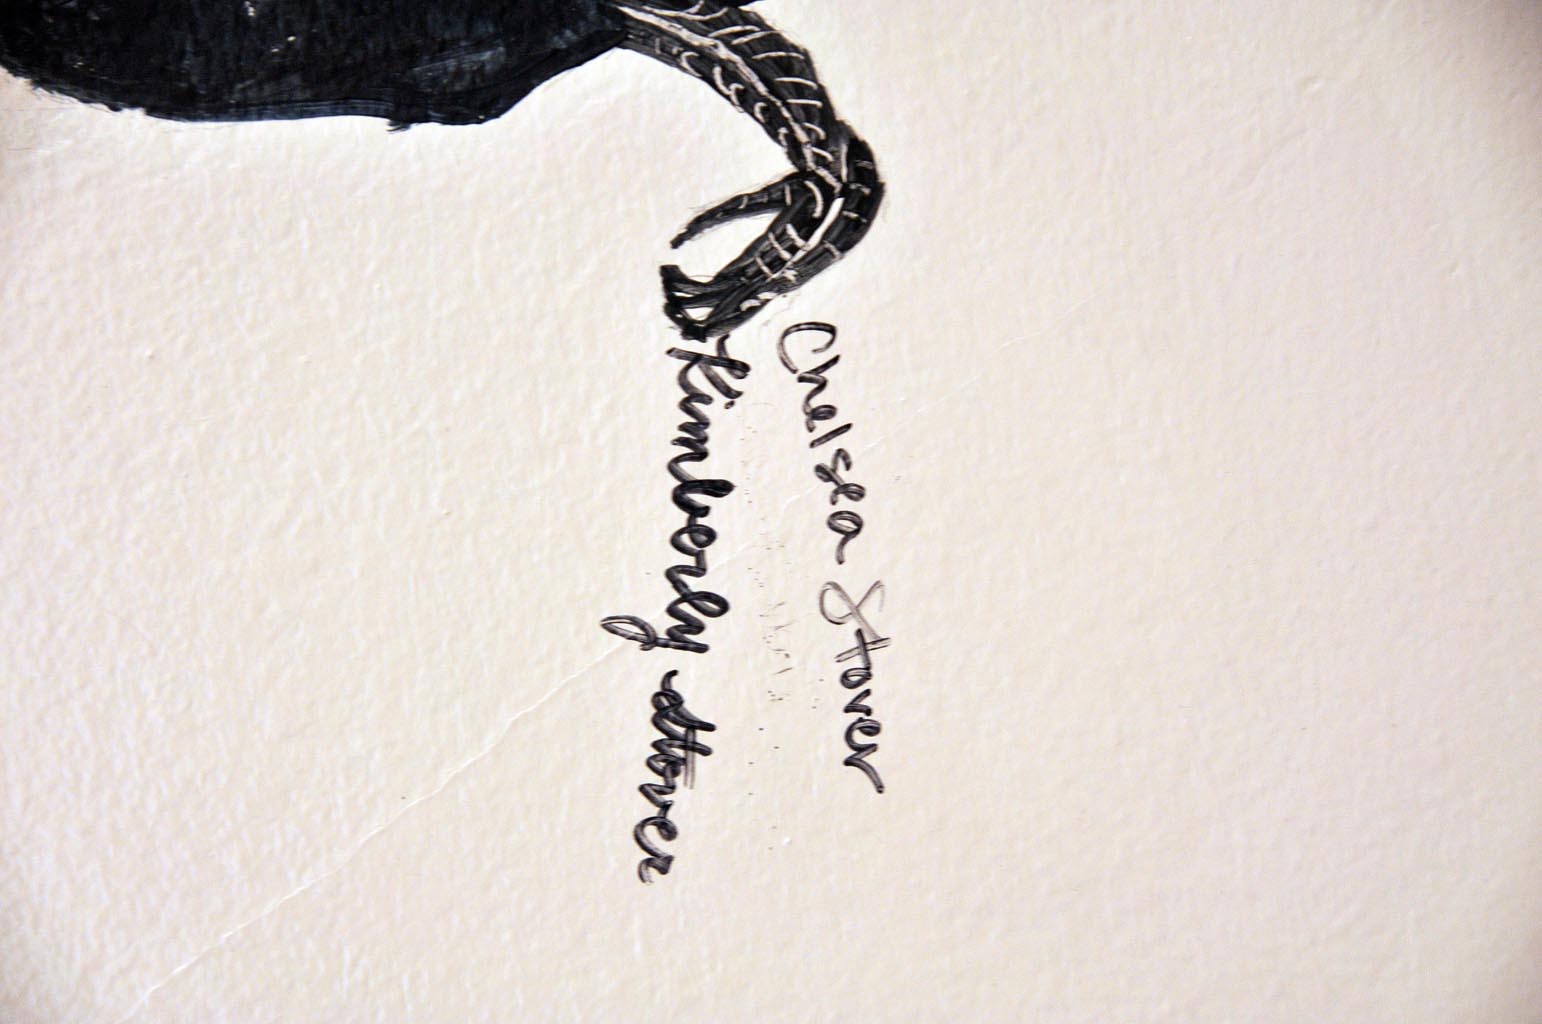 Chelsea Stover
Kimberly Stover